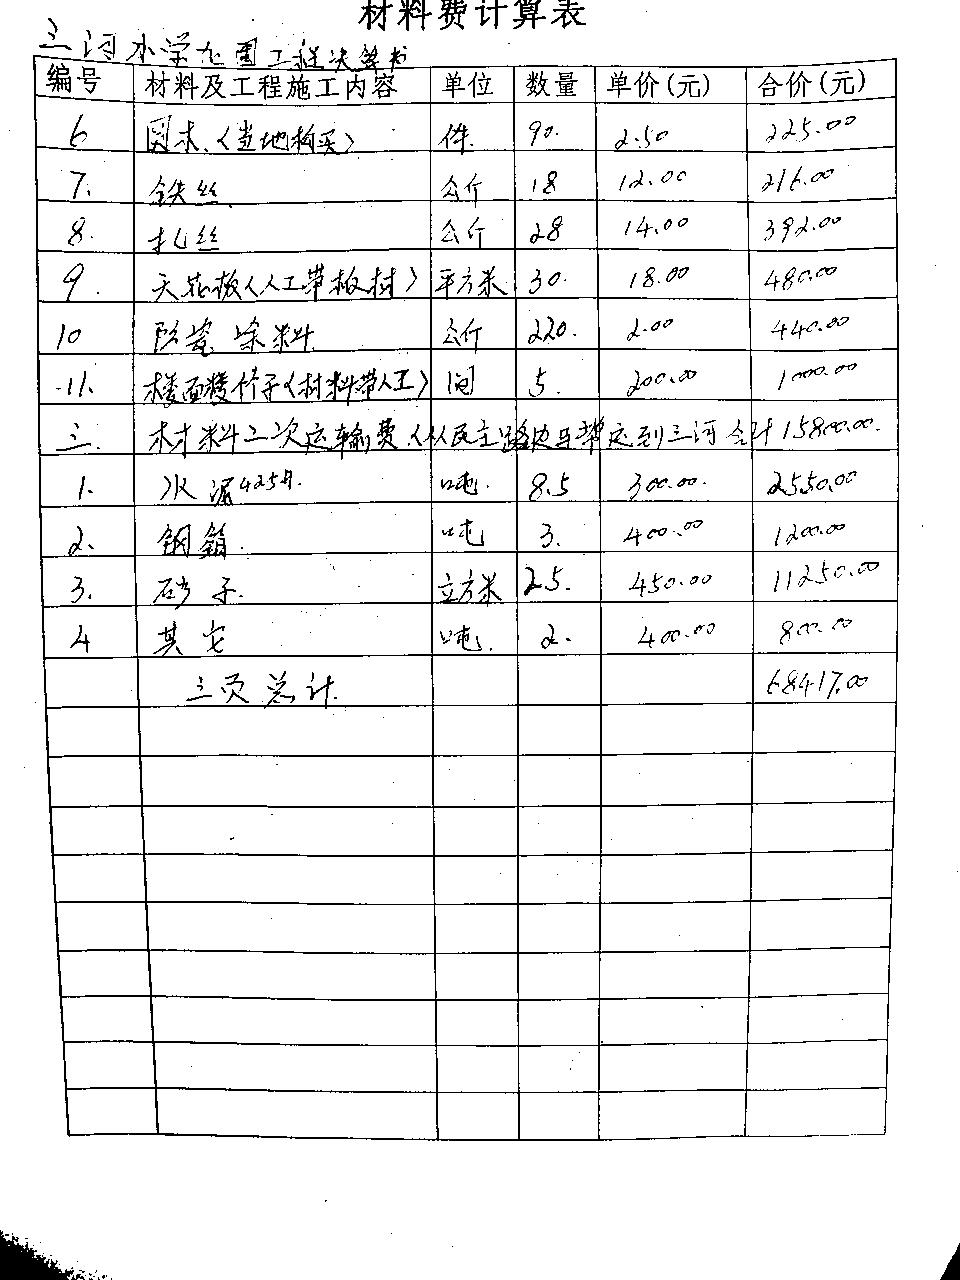 材料费计算表
三河小学九圄工程决算书
编号 材料及工程施工内容 单位 数量 单价(元) 合价(元)
6 圆木(当地构买) 件 90. 2.50 225.00
7. 铁丝 公斤 18 12.00 216.00
8. 扎丝 公斤 28 14.00 392.00
9. 天花板(人工带板材) 平方米 30. 18.00 480.00
10 防瓷涂料 公斤 220. 2.00 440.00
11. 楼面楼修予(材料带人工) 间 5. 200.00 1000.00
三. 材料二次运输费(从民主路边马帮运到三河合计15800.00.
1. 水泥425# 吨. 8.5 300.00. 2550.00
2. 钢筋. 吨 3. 400.00 1200.00
3. 砂子. 立方米 25. 450.00 11250.00
4 其它 吨. 2. 400.00 800.00
三页总计. 68417.00